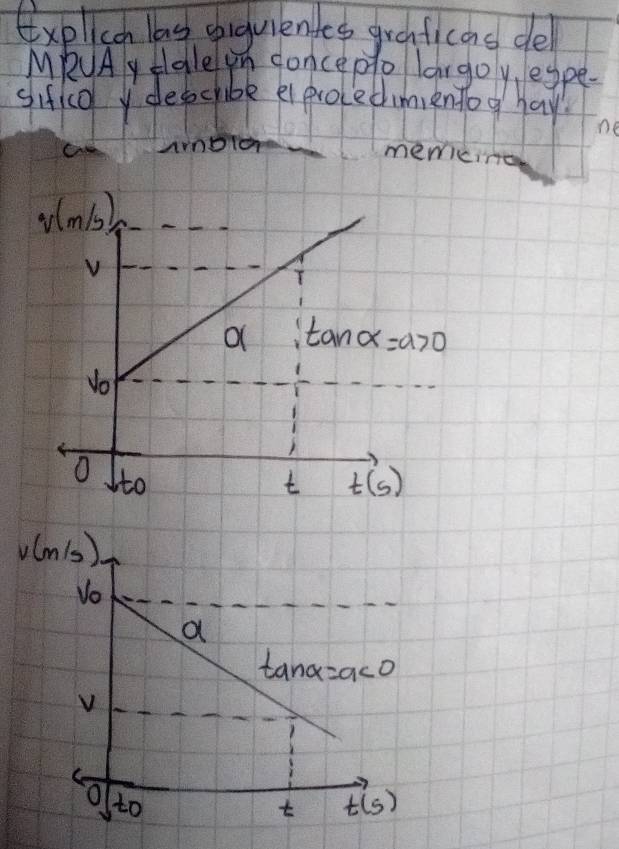 Explica las siguientes graficas del
MRUA y dale un concepto largo y espe-
sifico y describe el procedimiento q hay.
v(m/s)
v
α tanα=a>0
vo
0 to t t(s)
v(m/s)
vo
α
tanα=a<0
v
0 to t t(s)